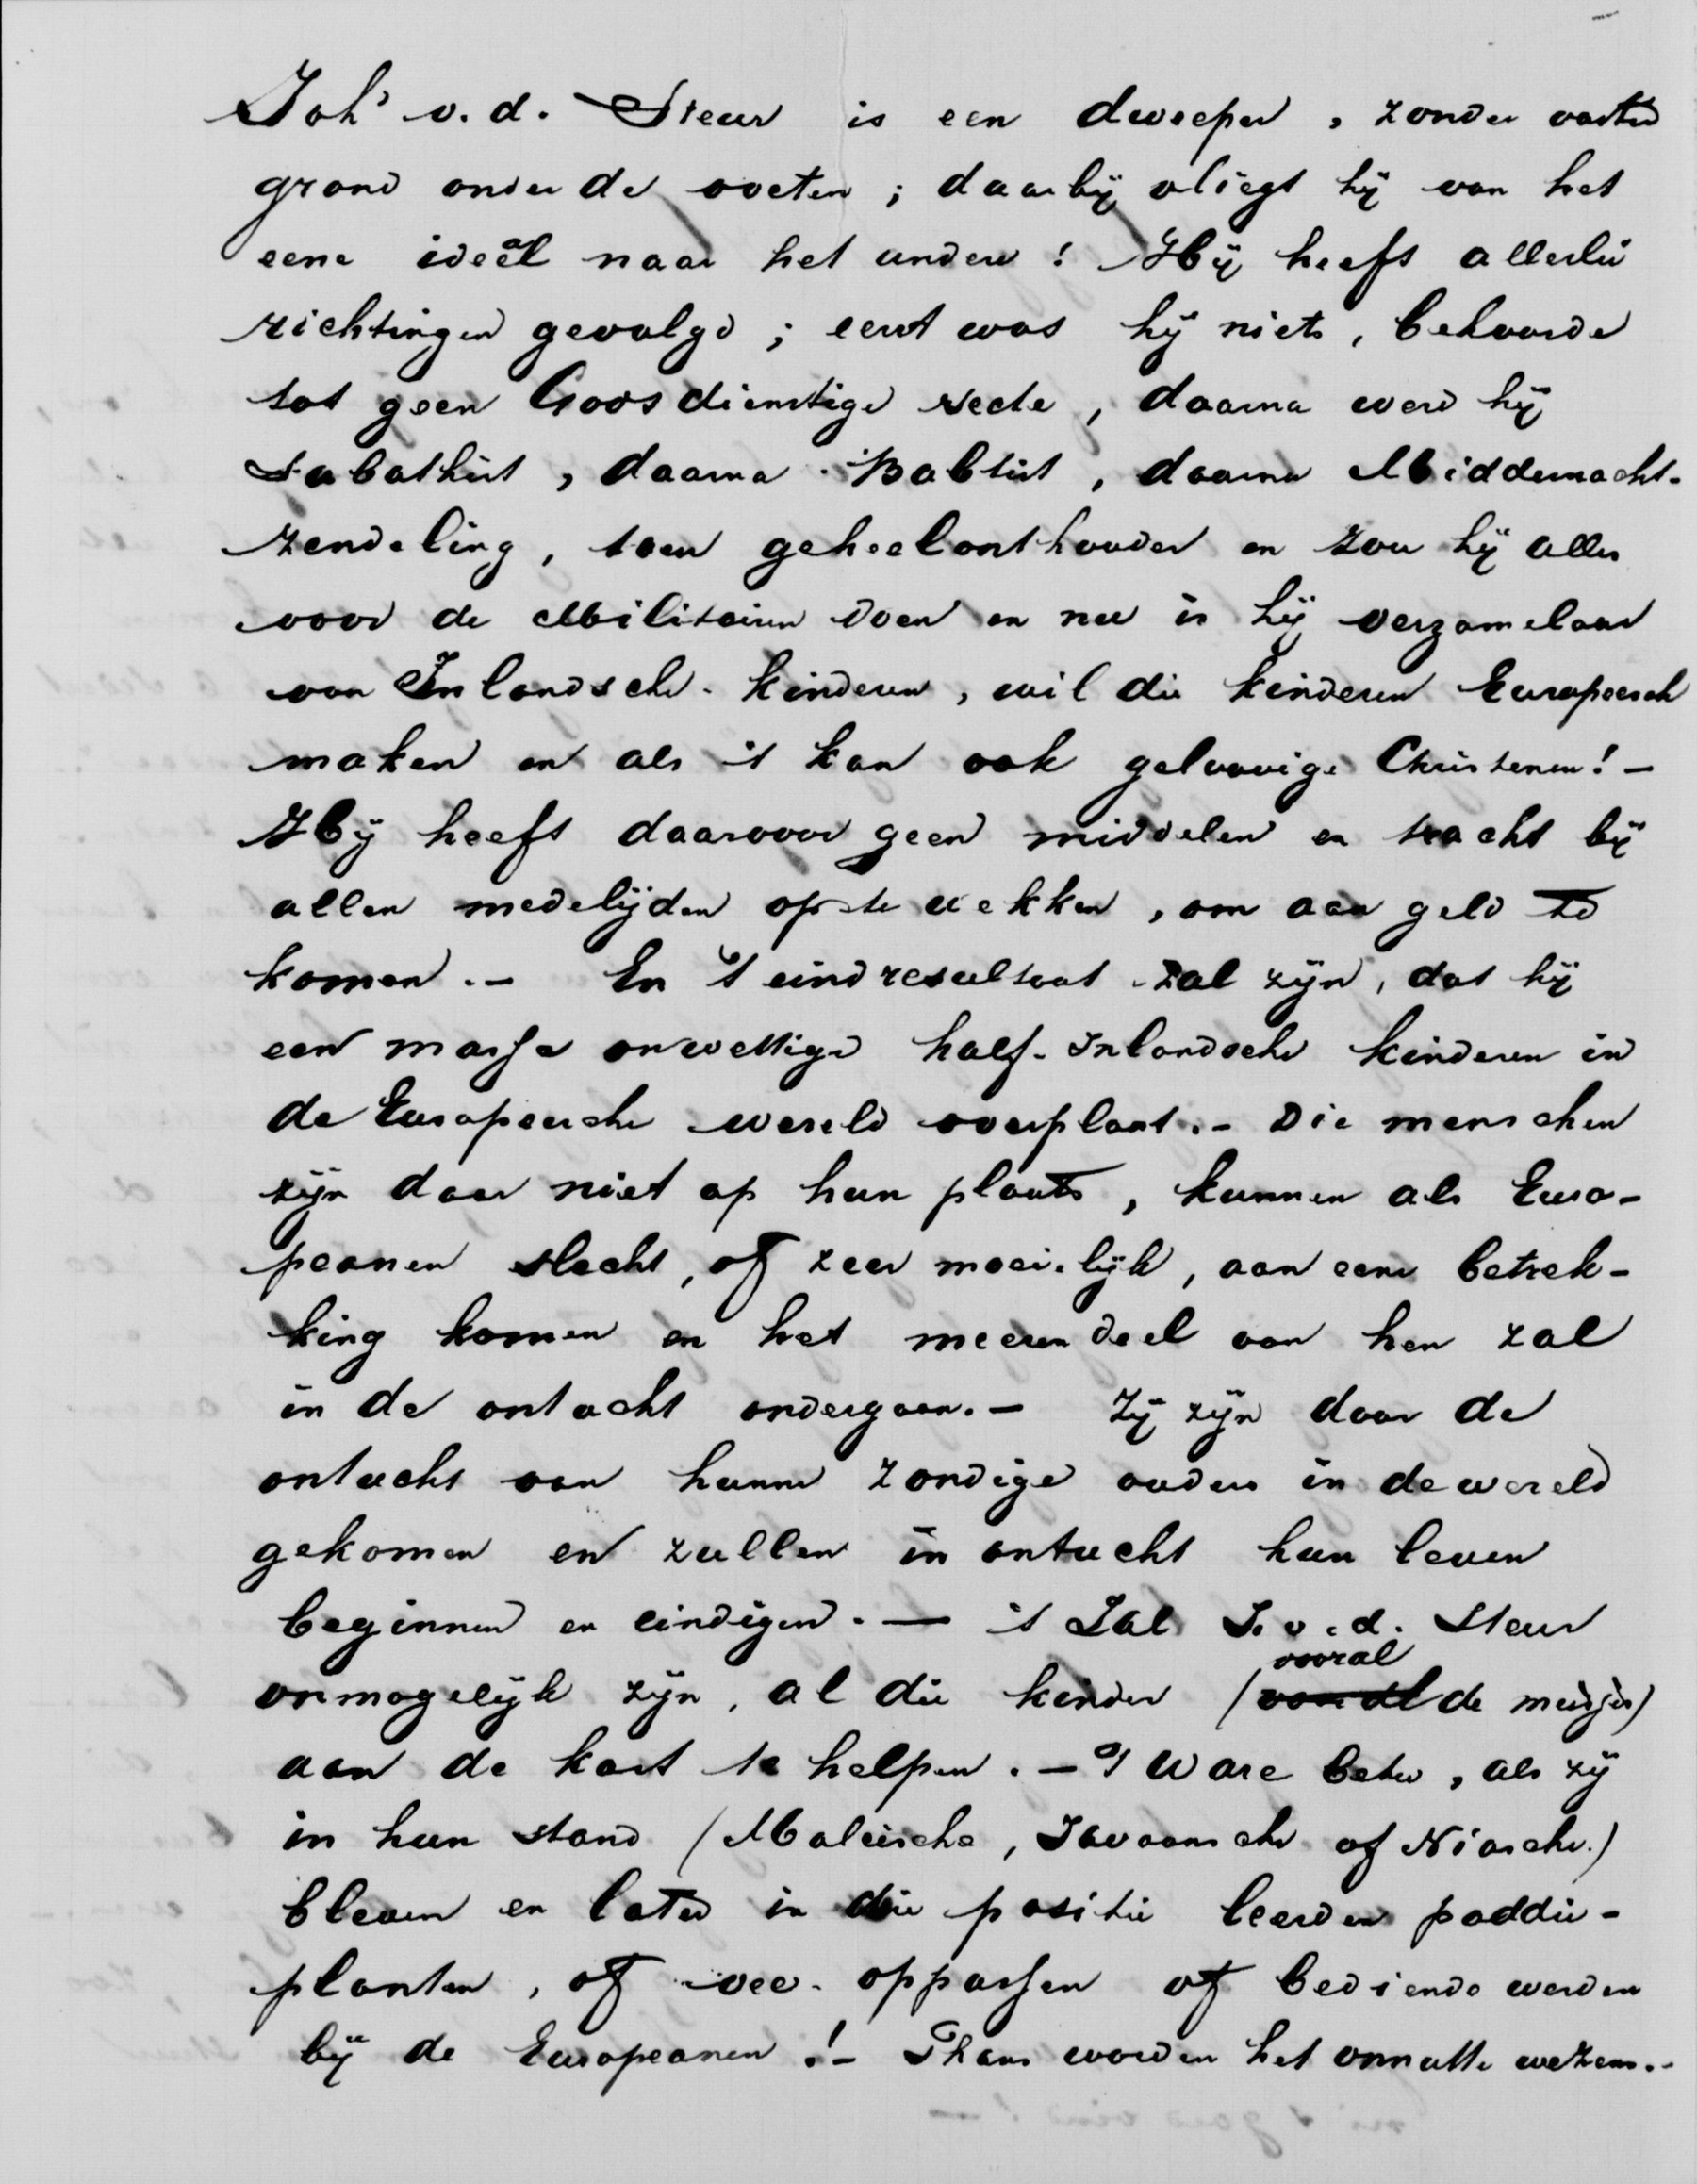 Joh<sup>s</sup> v. d. Steur is een dweeper, zonder vasten
grond onder de voeten; daarbij vliegt hij van het
eene ideaal naar het andere! Hij heeft allerlei
richtingen gevolgd; eerst was hij niets, behoorde
tot geen Godsdienstige secte, daarna werd hij
Sabathist, daarna Babtist, daarna Middernacht-
zendeling, toen geheelonthouder en zou hij alles
voor de Militairen doen en nu is hij verzamelaar
van Inlandsche-kinderen, wil die kinderen Europeesch
maken en als 't kan ook geloovige Christenen! -
Hij heeft daarvoor geen middelen en tracht bij
allen medelijden op te wekken, om aan geld te
komen. - En 't eindresultaat zal zijn, dat hij
een massa onwettige half-Inlandsche kinderen in
de Europeesche wereld overplant. - Die menschen
zijn daar niet op hun plaats, kunnen als Euro-
peanen slecht, of zeer moeielijk, aan eene betrek-
king komen en het meerendeel van hen zal
in de ontucht ondergaan. - Zij zijn door de
ontucht van hunne zondige ouders in de wereld
gekomen en zullen in ontucht hun leven
beginnen en eindigen. - 't Zal J. v. d. Steur
onmogelijk zijn, al die kinder (vooral de meisjes)
aan de kost te helpen. - 't Ware beter, als zij
in hun stand (Maleische, Javaansche of Niasche.)
bleven en later in die positie leerden paddie-
planten, of vee-oppassen of bediende werden
bij de Europeanen! - Thans worden het onnutte wezens. -